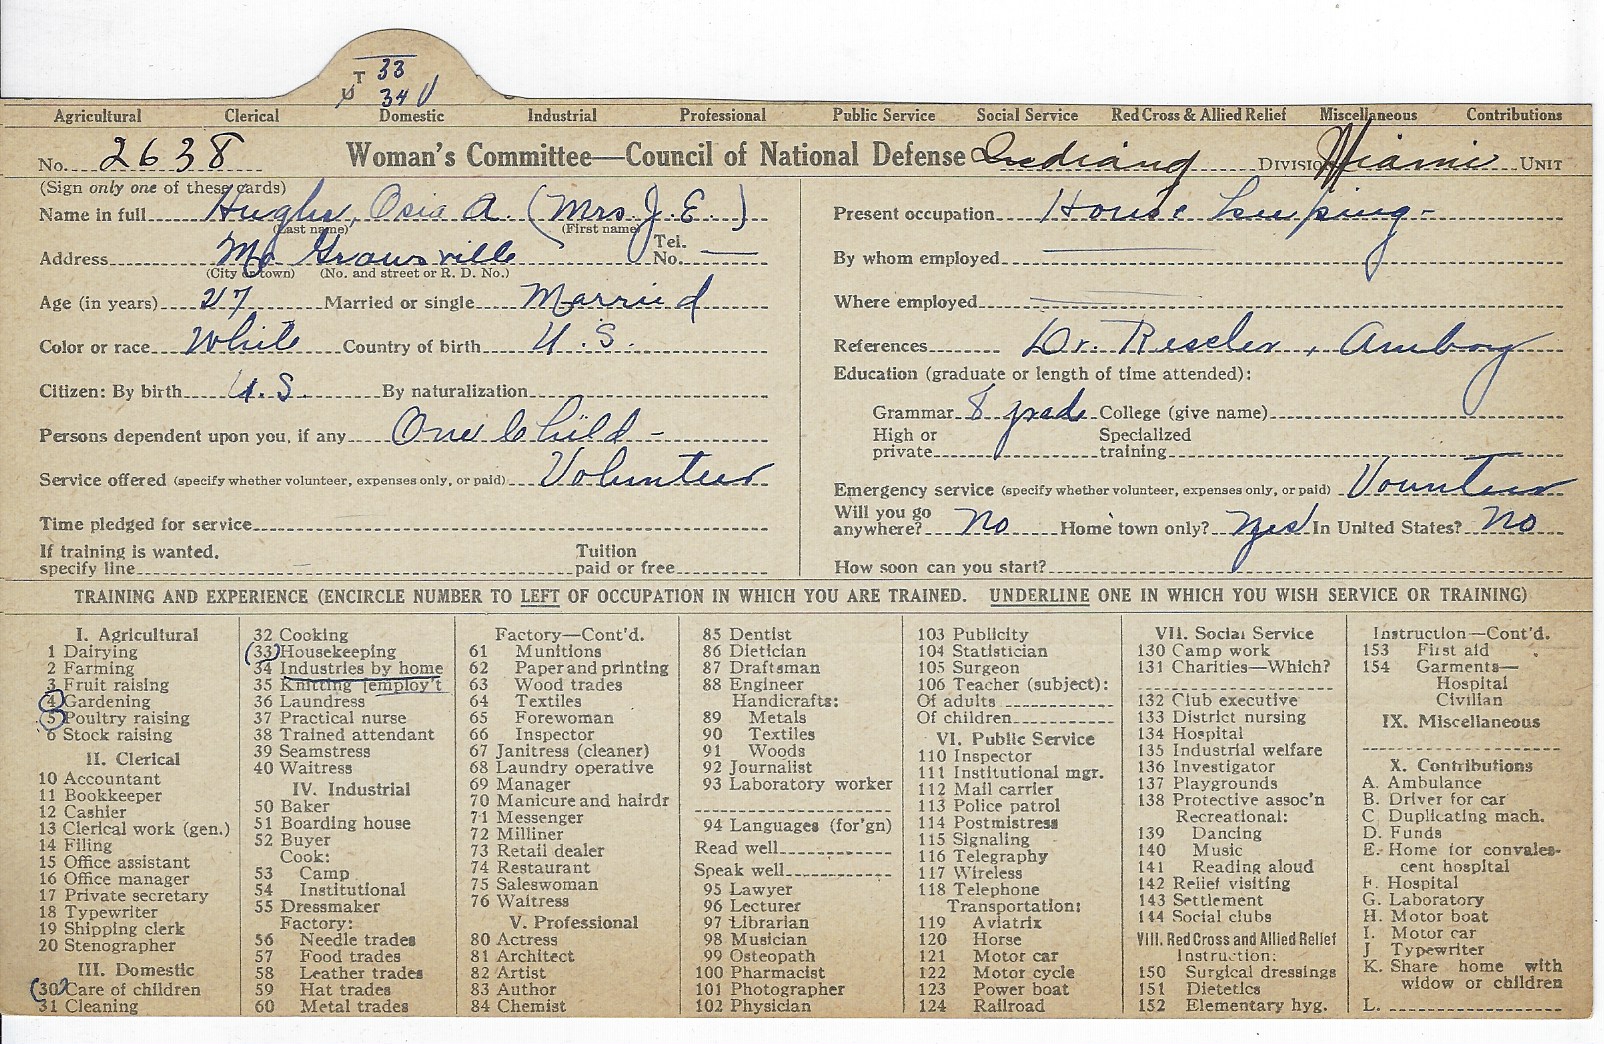 T 33
34 V
Agricultural Clerical Domestic Industrial Professional Public Service Social Service Red Cross & Allied Relief Miscellaneous Contributions
No. 2638 Woman's Committee—Council of National Defense Indiana Division Miami Unit
(Sign only one of these cards)
Name in full Hughs, Osia A. (Mrs. J. E.)
(Last name) (First name)
Address Mo Grawsville Tel. No. —
(City or town) (No. and street or R. D. No.)
Age (in years) 27 Married or single Married
Color or race White Country of birth U.S.
Citizen: By birth U.S. By naturalization
Persons dependent upon you, if any One Child -
Service offered (specify whether volunteer, expenses only, or paid) Volunteer
Time pledged for service
If training is wanted, specify line Tuition paid or free
Present occupation House keeping -
By whom employed
Where employed
References Dr. Resler, Amboy
Education (graduate or length of time attended):
Grammar 8 grade College (give name)
High or private Specialized training
Emergency service (specify whether volunteer, expenses only, or paid) Vounteer
Will you go anywhere? No Home town only? Yes In United States? No
How soon can you start?
TRAINING AND EXPERIENCE (ENCIRCLE NUMBER TO LEFT OF OCCUPATION IN WHICH YOU ARE TRAINED. UNDERLINE ONE IN WHICH YOU WISH SERVICE OR TRAINING)
I. Agricultural
1 Dairying
2 Farming
3 Fruit raising
4 Gardening
5 Poultry raising
6 Stock raising
II. Clerical
10 Accountant
11 Bookkeeper
12 Cashier
13 Clerical work (gen.)
14 Filing
15 Office assistant
16 Office manager
17 Private secretary
18 Typewriter
19 Shipping clerk
20 Stenographer
III. Domestic
30 Care of children
31 Cleaning
32 Cooking
33 Housekeeping
34 Industries by home
35 Knitting [employ't
36 Laundress
37 Practical nurse
38 Trained attendant
39 Seamstress
40 Waitress
IV. Industrial
50 Baker
51 Boarding house
52 Buyer
Cook:
53 Camp
54 Institutional
55 Dressmaker
Factory:
56 Needle trades
57 Food trades
58 Leather trades
59 Hat trades
60 Metal trades
Factory—Cont'd.
61 Munitions
62 Paper and printing
63 Wood trades
64 Textiles
65 Forewoman
66 Inspector
67 Janitress (cleaner)
68 Laundry operative
69 Manager
70 Manicure and hairdr
71 Messenger
72 Milliner
73 Retail dealer
74 Restaurant
75 Saleswoman
76 Waitress
V. Professional
80 Actress
81 Architect
82 Artist
83 Author
84 Chemist
85 Dentist
86 Dietician
87 Draftsman
88 Engineer
Handicrafts:
89 Metals
90 Textiles
91 Woods
92 Journalist
93 Laboratory worker
94 Languages (for'gn)
Read well
Speak well
95 Lawyer
96 Lecturer
97 Librarian
98 Musician
99 Osteopath
100 Pharmacist
101 Photographer
102 Physician
103 Publicity
104 Statistician
105 Surgeon
106 Teacher (subject):
Of adults
Of children
VI. Public Service
110 Inspector
111 Institutional mgr.
112 Mail carrier
113 Police patrol
114 Postmistress
115 Signaling
116 Telegraphy
117 Wireless
118 Telephone
Transportation:
119 Aviatrix
120 Horse
121 Motor car
122 Motor cycle
123 Power boat
124 Railroad
VII. Social Service
130 Camp work
131 Charities—Which?
132 Club executive
133 District nursing
134 Hospital
135 Industrial welfare
136 Investigator
137 Playgrounds
138 Protective assoc'n
Recreational:
139 Dancing
140 Music
141 Reading aloud
142 Relief visiting
143 Settlement
144 Social clubs
VIII. Red Cross and Allied Relief
Instruction:
150 Surgical dressings
151 Dietetics
152 Elementary hyg.
Instruction—Cont'd.
153 First aid
154 Garments—
Hospital
Civilian
IX. Miscellaneous
X. Contributions
A. Ambulance
B. Driver for car
C. Duplicating mach.
D. Funds
E. Home for convales-
cent hospital
F. Hospital
G. Laboratory
H. Motor boat
I. Motor car
J Typewriter
K. Share home with
widow or children
L.